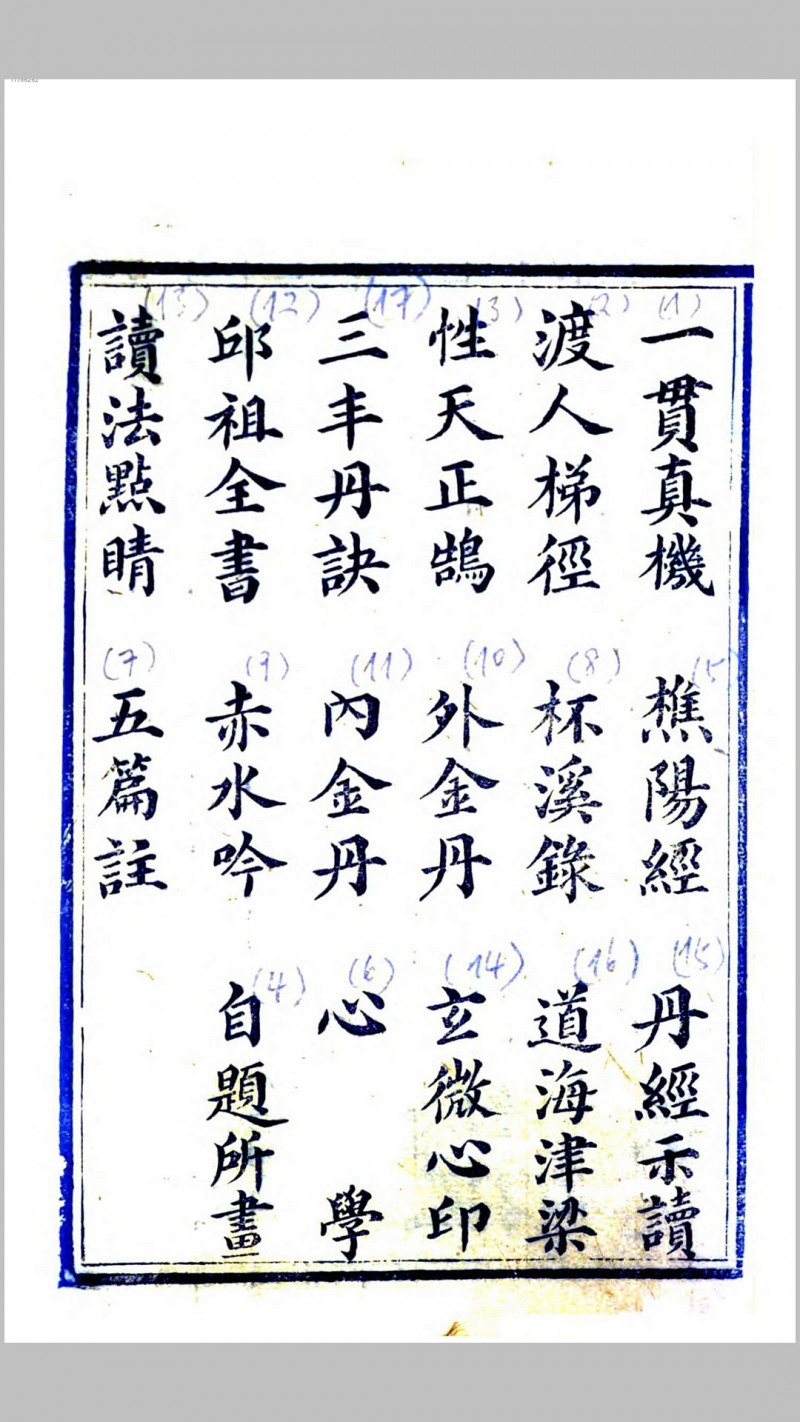 (1)
一貫真機
(2)
渡人梯徑
(3)
性天正鵠
(17)
三丰丹訣
(12)
邱祖全書
(13)
讀法點睛
(5)
樵陽經
(8)
杯溪錄
(10)
外金丹
(11)
內金丹
(9)
赤水吟
(7)
五篇註
(15)
丹經示讀
(16)
道海津梁
(14)
玄微心印
(6)
心學
(4)
自題所畫